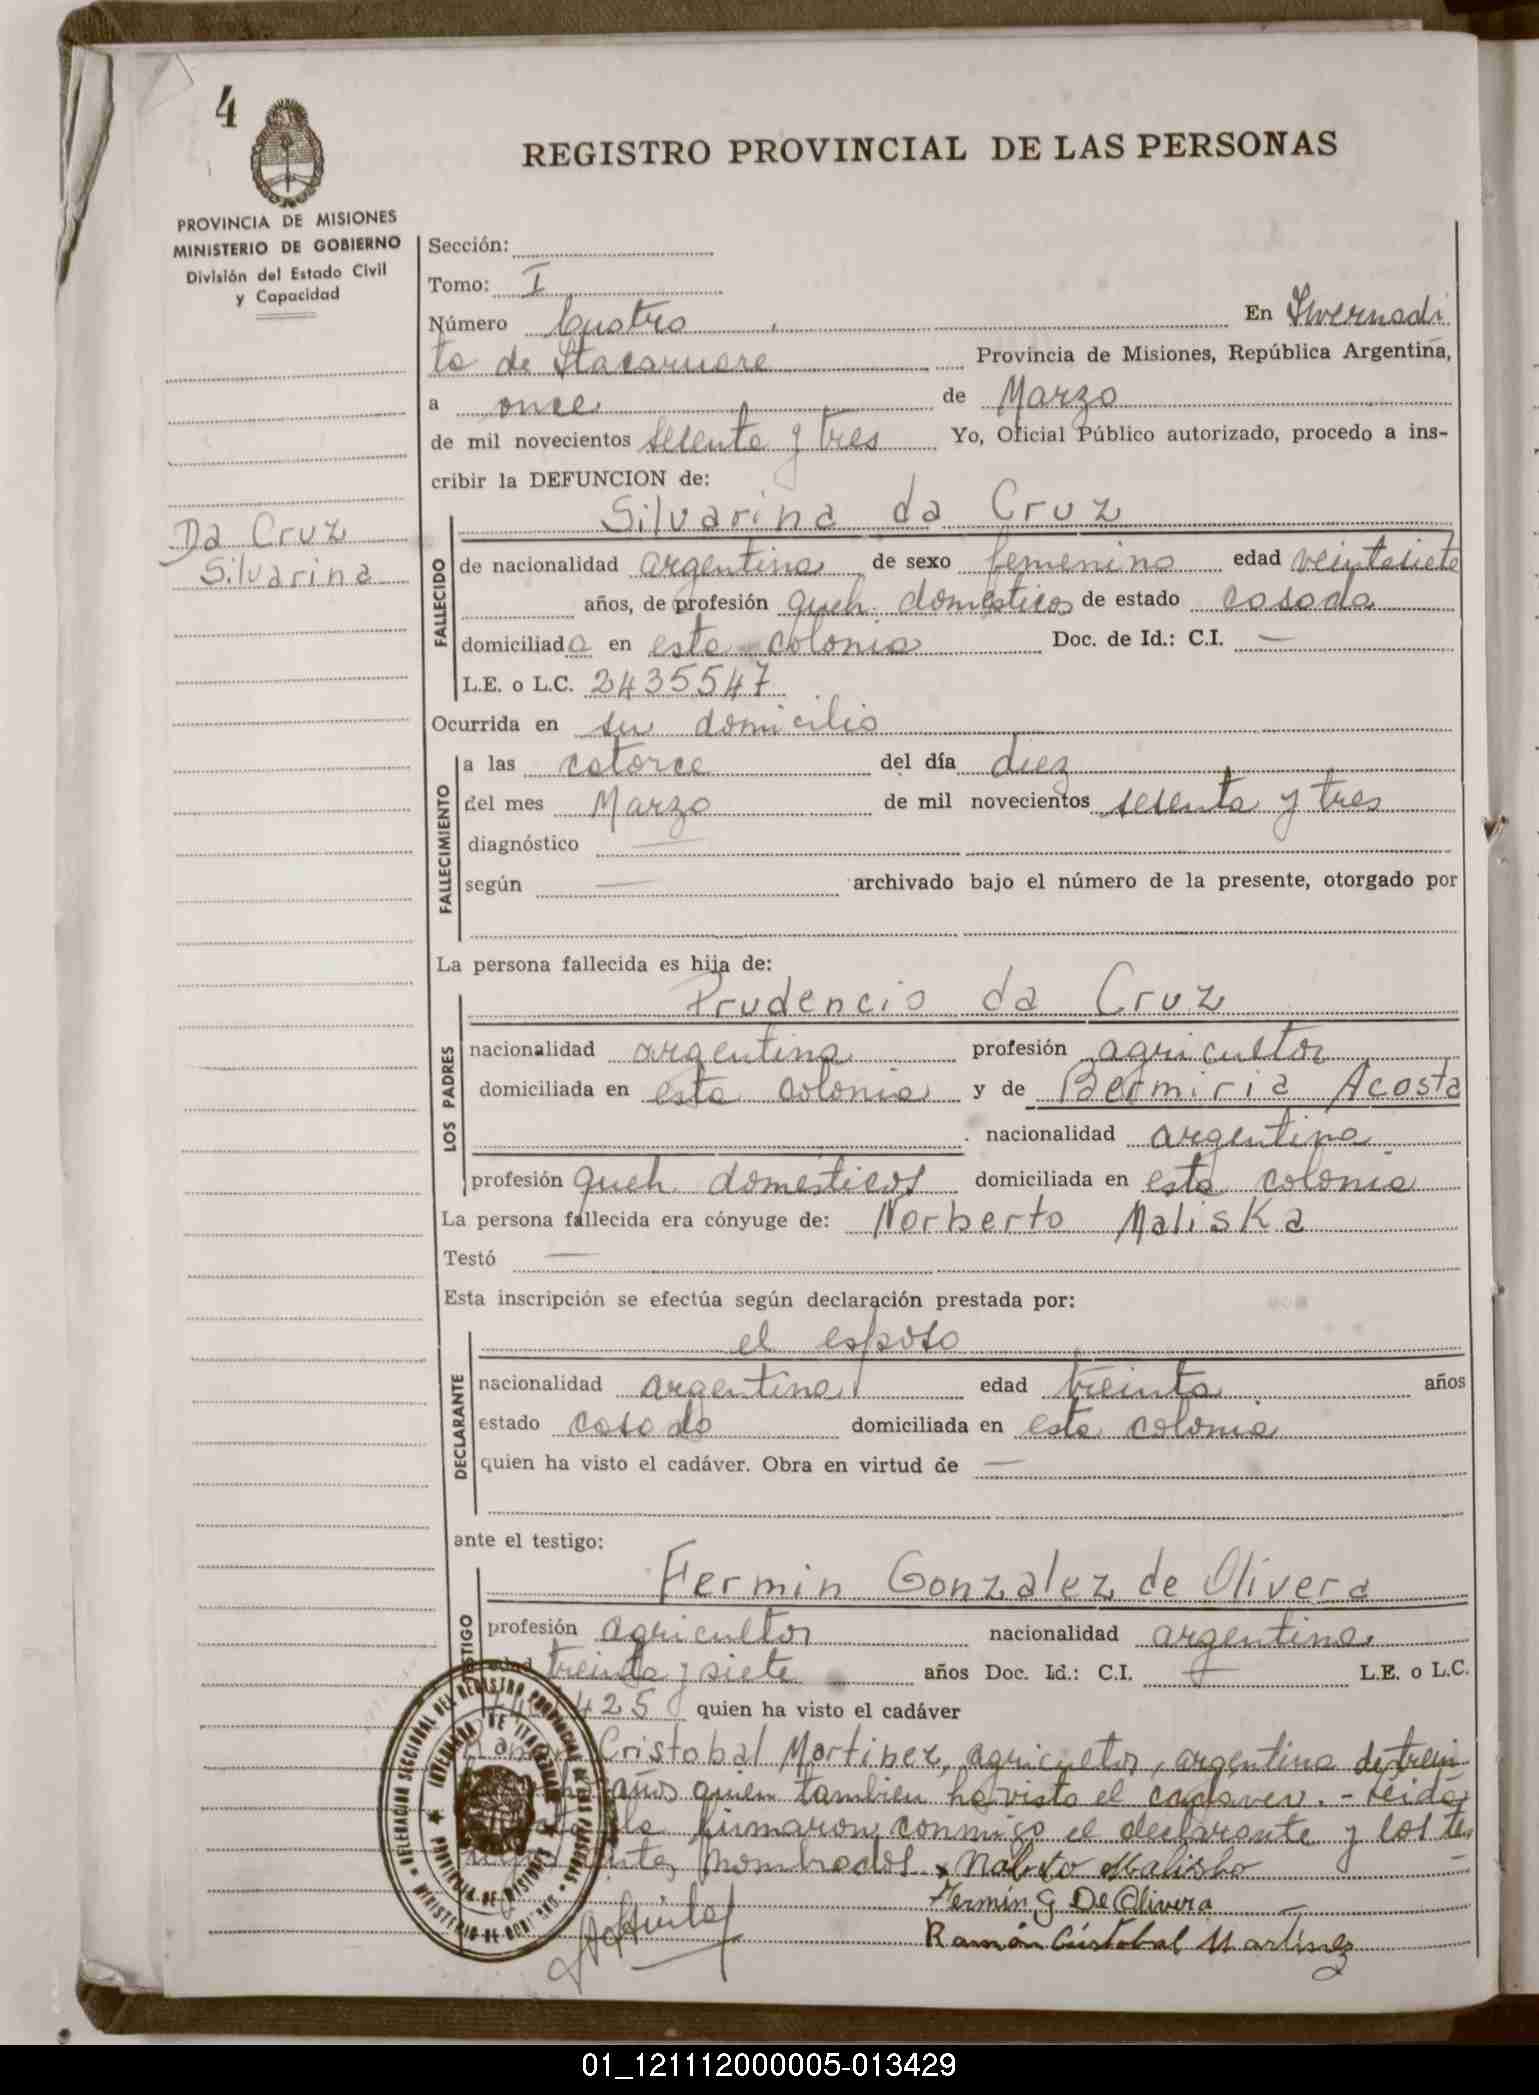 4
REGISTRO PROVINCIAL DE LAS PERSONAS
PROVINCIA DE MISIONES
MINISTERIO DE GOBIERNO
División del Estado Civil
y Capacidad
Sección:
Tomo: I
Número Cuatro En Invernadi
ta de Itacaruare Provincia de Misiones, República Argentina,
a once de Marzo
de mil novecientos setenta y tres Yo, Oficial Público autorizado, procedo a ins-
cribir la DEFUNCION de:
Da Cruz
Silvarina
FALLECIDO
Silvarina da Cruz
de nacionalidad argentina de sexo femenino edad veintisiete
años, de profesión queh. domésticos de estado casada
domiciliada en esta colonia Doc. de Id.: C.I. —
L.E. o L.C. 2435547
Ocurrida en su domicilio
FALLECIMIENTO
a las catorce del día diez
del mes Marzo de mil novecientos setenta y tres
diagnóstico —
según — archivado bajo el número de la presente, otorgado por
La persona fallecida es hija de:
LOS PADRES
Prudencio da Cruz
nacionalidad argentina profesión agricultor
domiciliada en esta colonia y de Bermiria Acosta
nacionalidad argentina
profesión queh. domésticos domiciliada en esta colonia
La persona fallecida era cónyuge de: Norberto Maliska
Testó —
Esta inscripción se efectúa según declaración prestada por:
DECLARANTE
el esposo
nacionalidad argentina edad treinta años
estado casado domiciliada en esta colonia
quien ha visto el cadáver. Obra en virtud de —
ante el testigo:
TESTIGO
Fermin Gonzalez de Olivera
profesión agricultor nacionalidad argentina
edad treinta y siete años Doc. Id.: C.I. — L.E. o L.C.
425 quien ha visto el cadáver
Cristobal Martinez, agricultor, argentino de trein
años quien tambien ha visto el cadaver. - Leida
firmaron conmigo el declarante y los te
nombrados x Maliska
Fermin G De Olivera
Ramón Cristobal Martinez
DELEGACION SECCIONAL DEL REGISTRO PROVINCIAL DE LAS PERSONAS
MINISTERIO DE GOBIERNO
PROVINCIA DE MISIONES
01_121112000005-013429